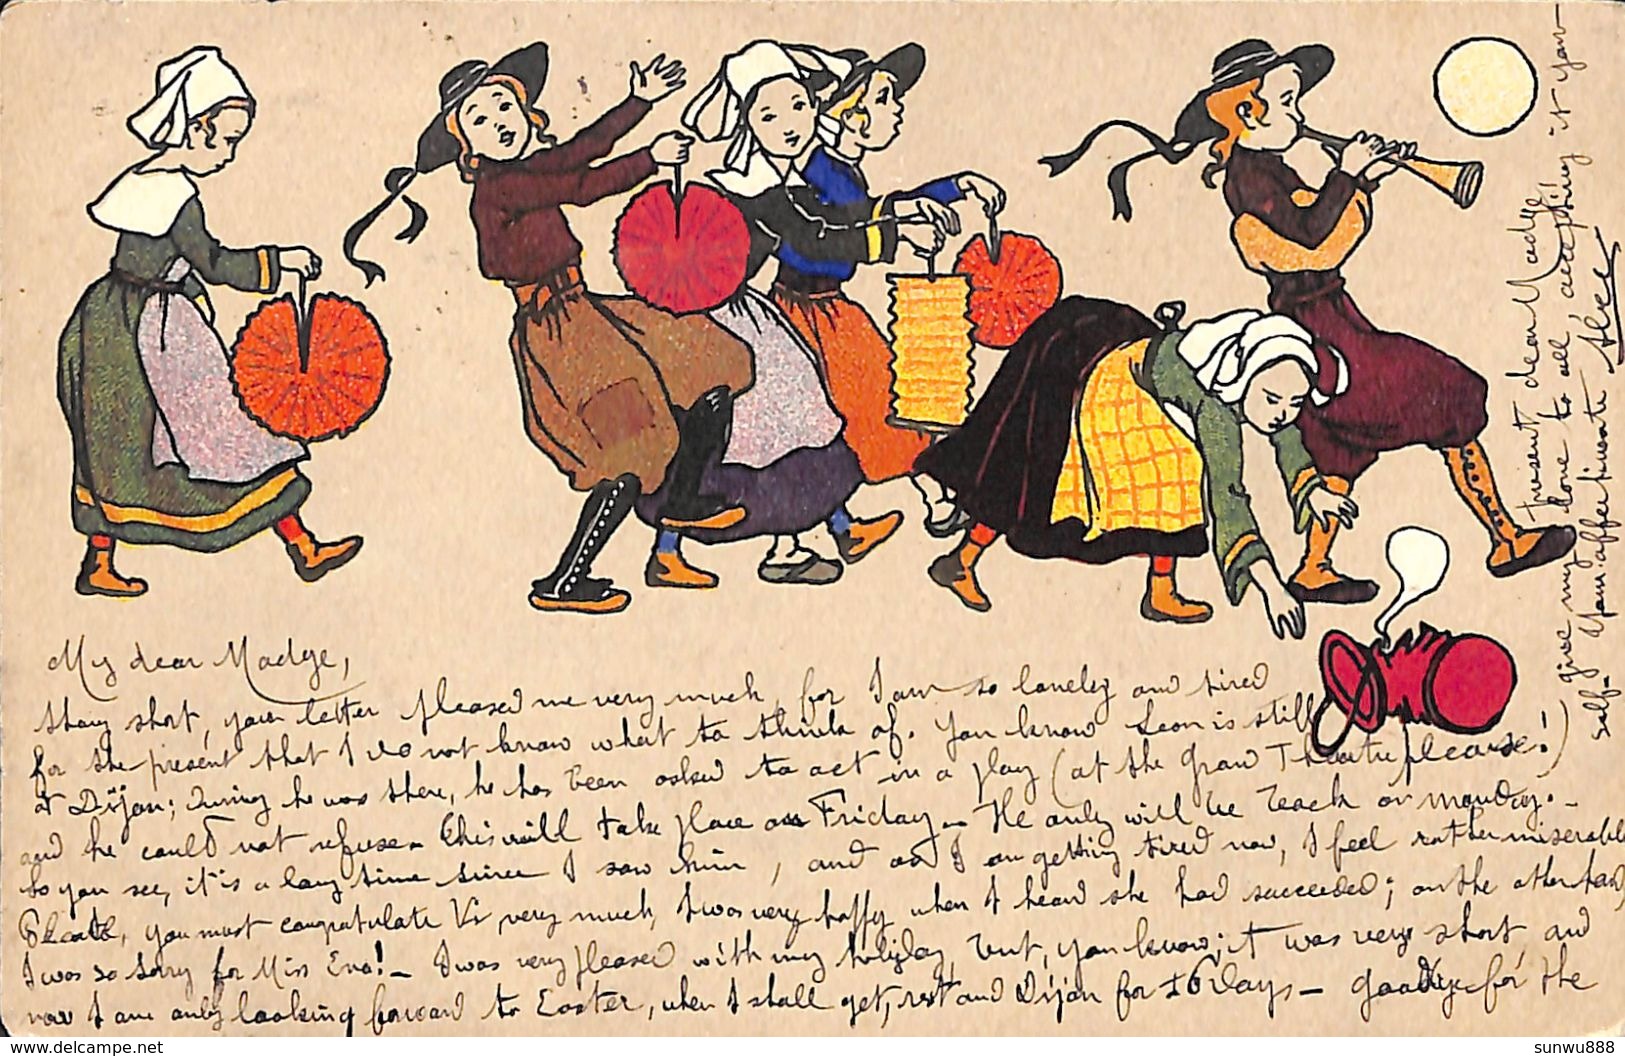 My dear Madge,
Though short, your letter pleased me very much, for I am so lonely and tired
for the present that I do not know what to think of. You know Leon is still
at Dijon; During he was there, he has been asked to act in a play (at the Grand Theatre please!)
and he could not refuse. This will take place on Friday - He only will be back on monday. -
So you see, it is a long time since I saw him, and as I am getting tired now, I feel rather miserable
you must congratulate Vi very much, I was very happy when I heard she had succeeded; on the other hand,
I was so sorry for Miss Eva! - I was very pleased with my holiday, but, you know; it was very short, and
now I am only looking forward to Easter, when I shall get, rest and Dijon for 16 days - Goodbye for the
present dear Madge
give my love to all, accepting it your
self - Your affectionate
sunwu888